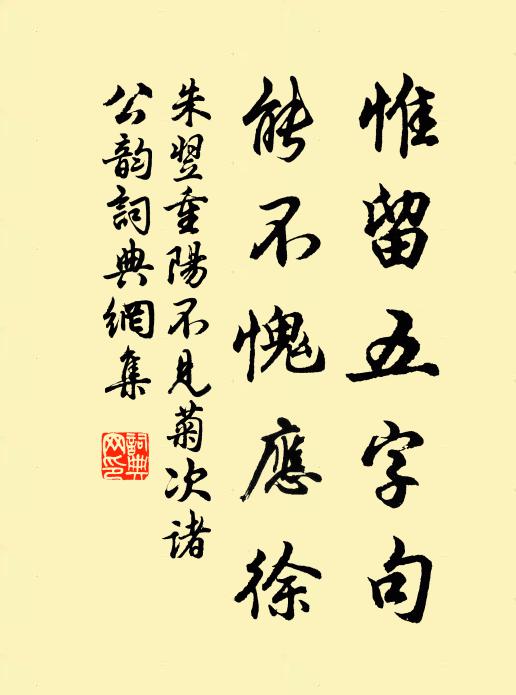 惟留五字句
能不愧應徐
朱翌重陽不見菊次諸
公韵詞典網集
詞典網印